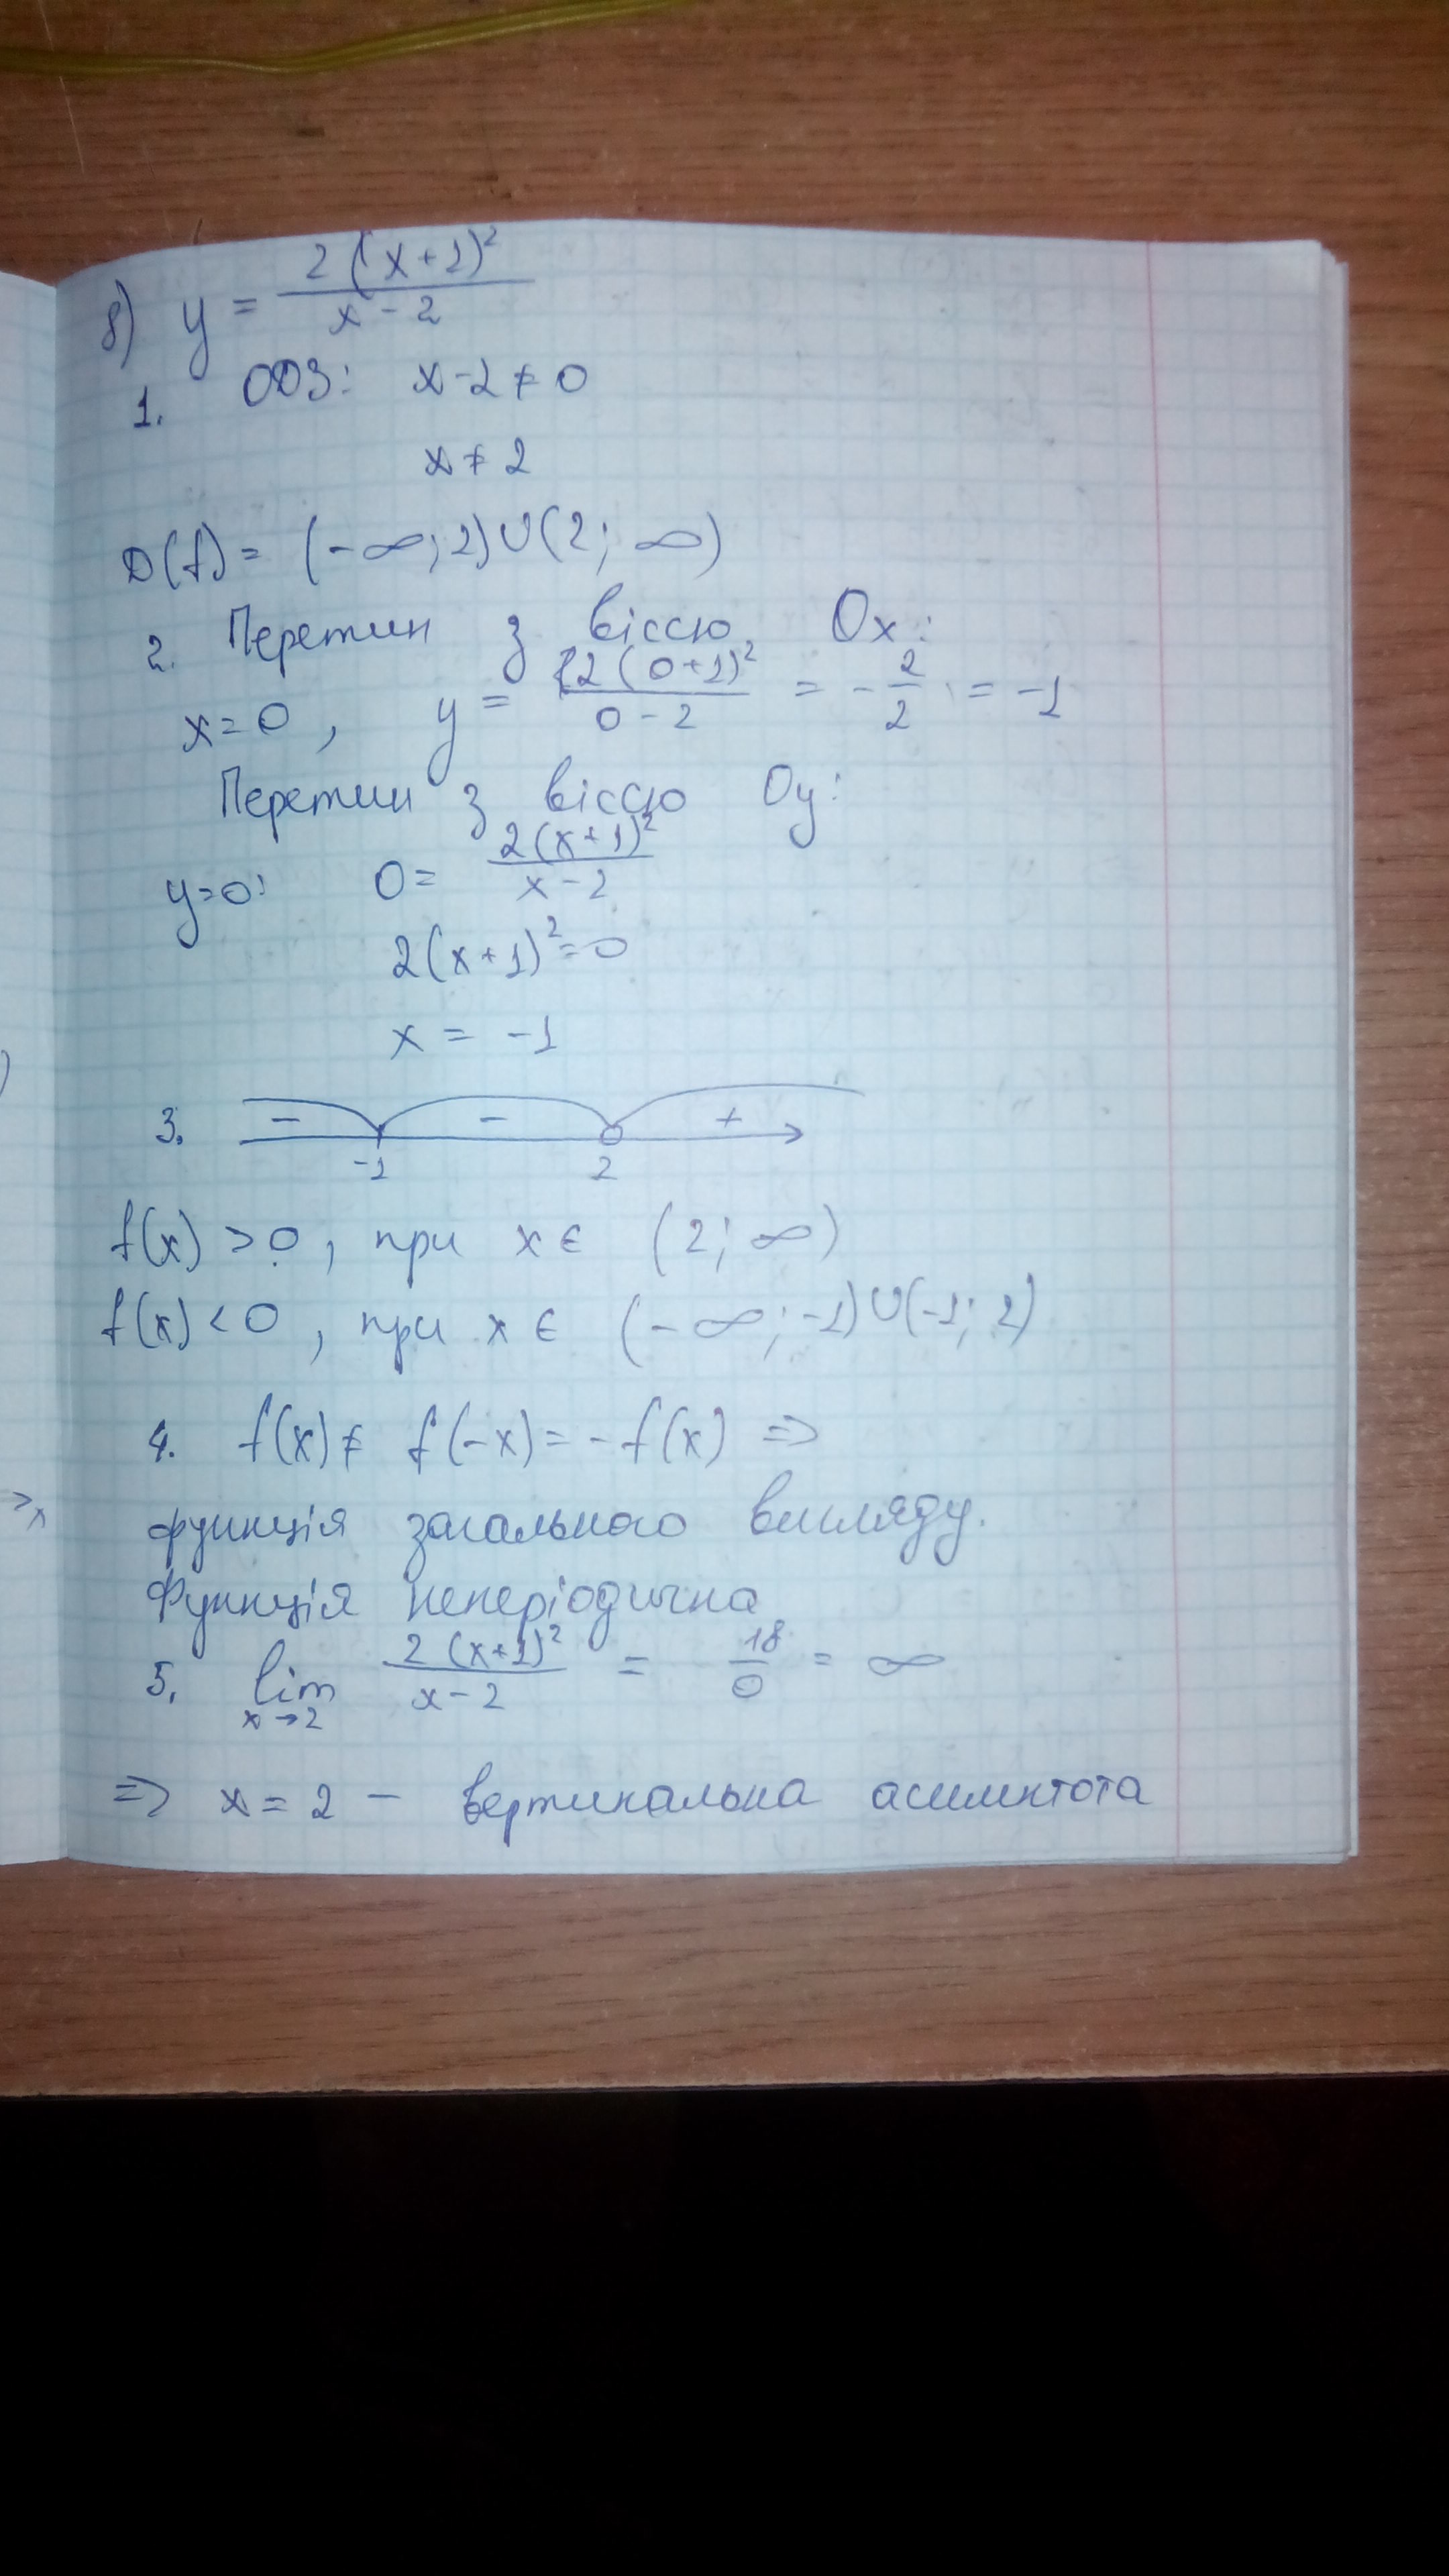 8) y = 2(x+1)² / x-2
1. ОДЗ: x-2≠0
x≠2
D(f)= (-∞;2)∪(2;∞)
2. Перетин з віссю Ox:
x=0, y = 2(0+1)² / 0-2 = -2/2 = -1
Перетин з віссю Oy:
y=0: 0= 2(x+1)² / x-2
2(x+1)²=0
x = -1
3. - - +
-1 2
f(x) >0, при x∈ (2;∞)
f(x)<0, при x∈ (-∞;-1)∪(-1;2)
4. f(x)≠ f(-x)=-f(x) =>
функція загального вигляду.
Функція неперіодична
5. lim x→2 2(x+1)² / x-2 = 18/0 = ∞
=> x=2 - вертикальна асимптота